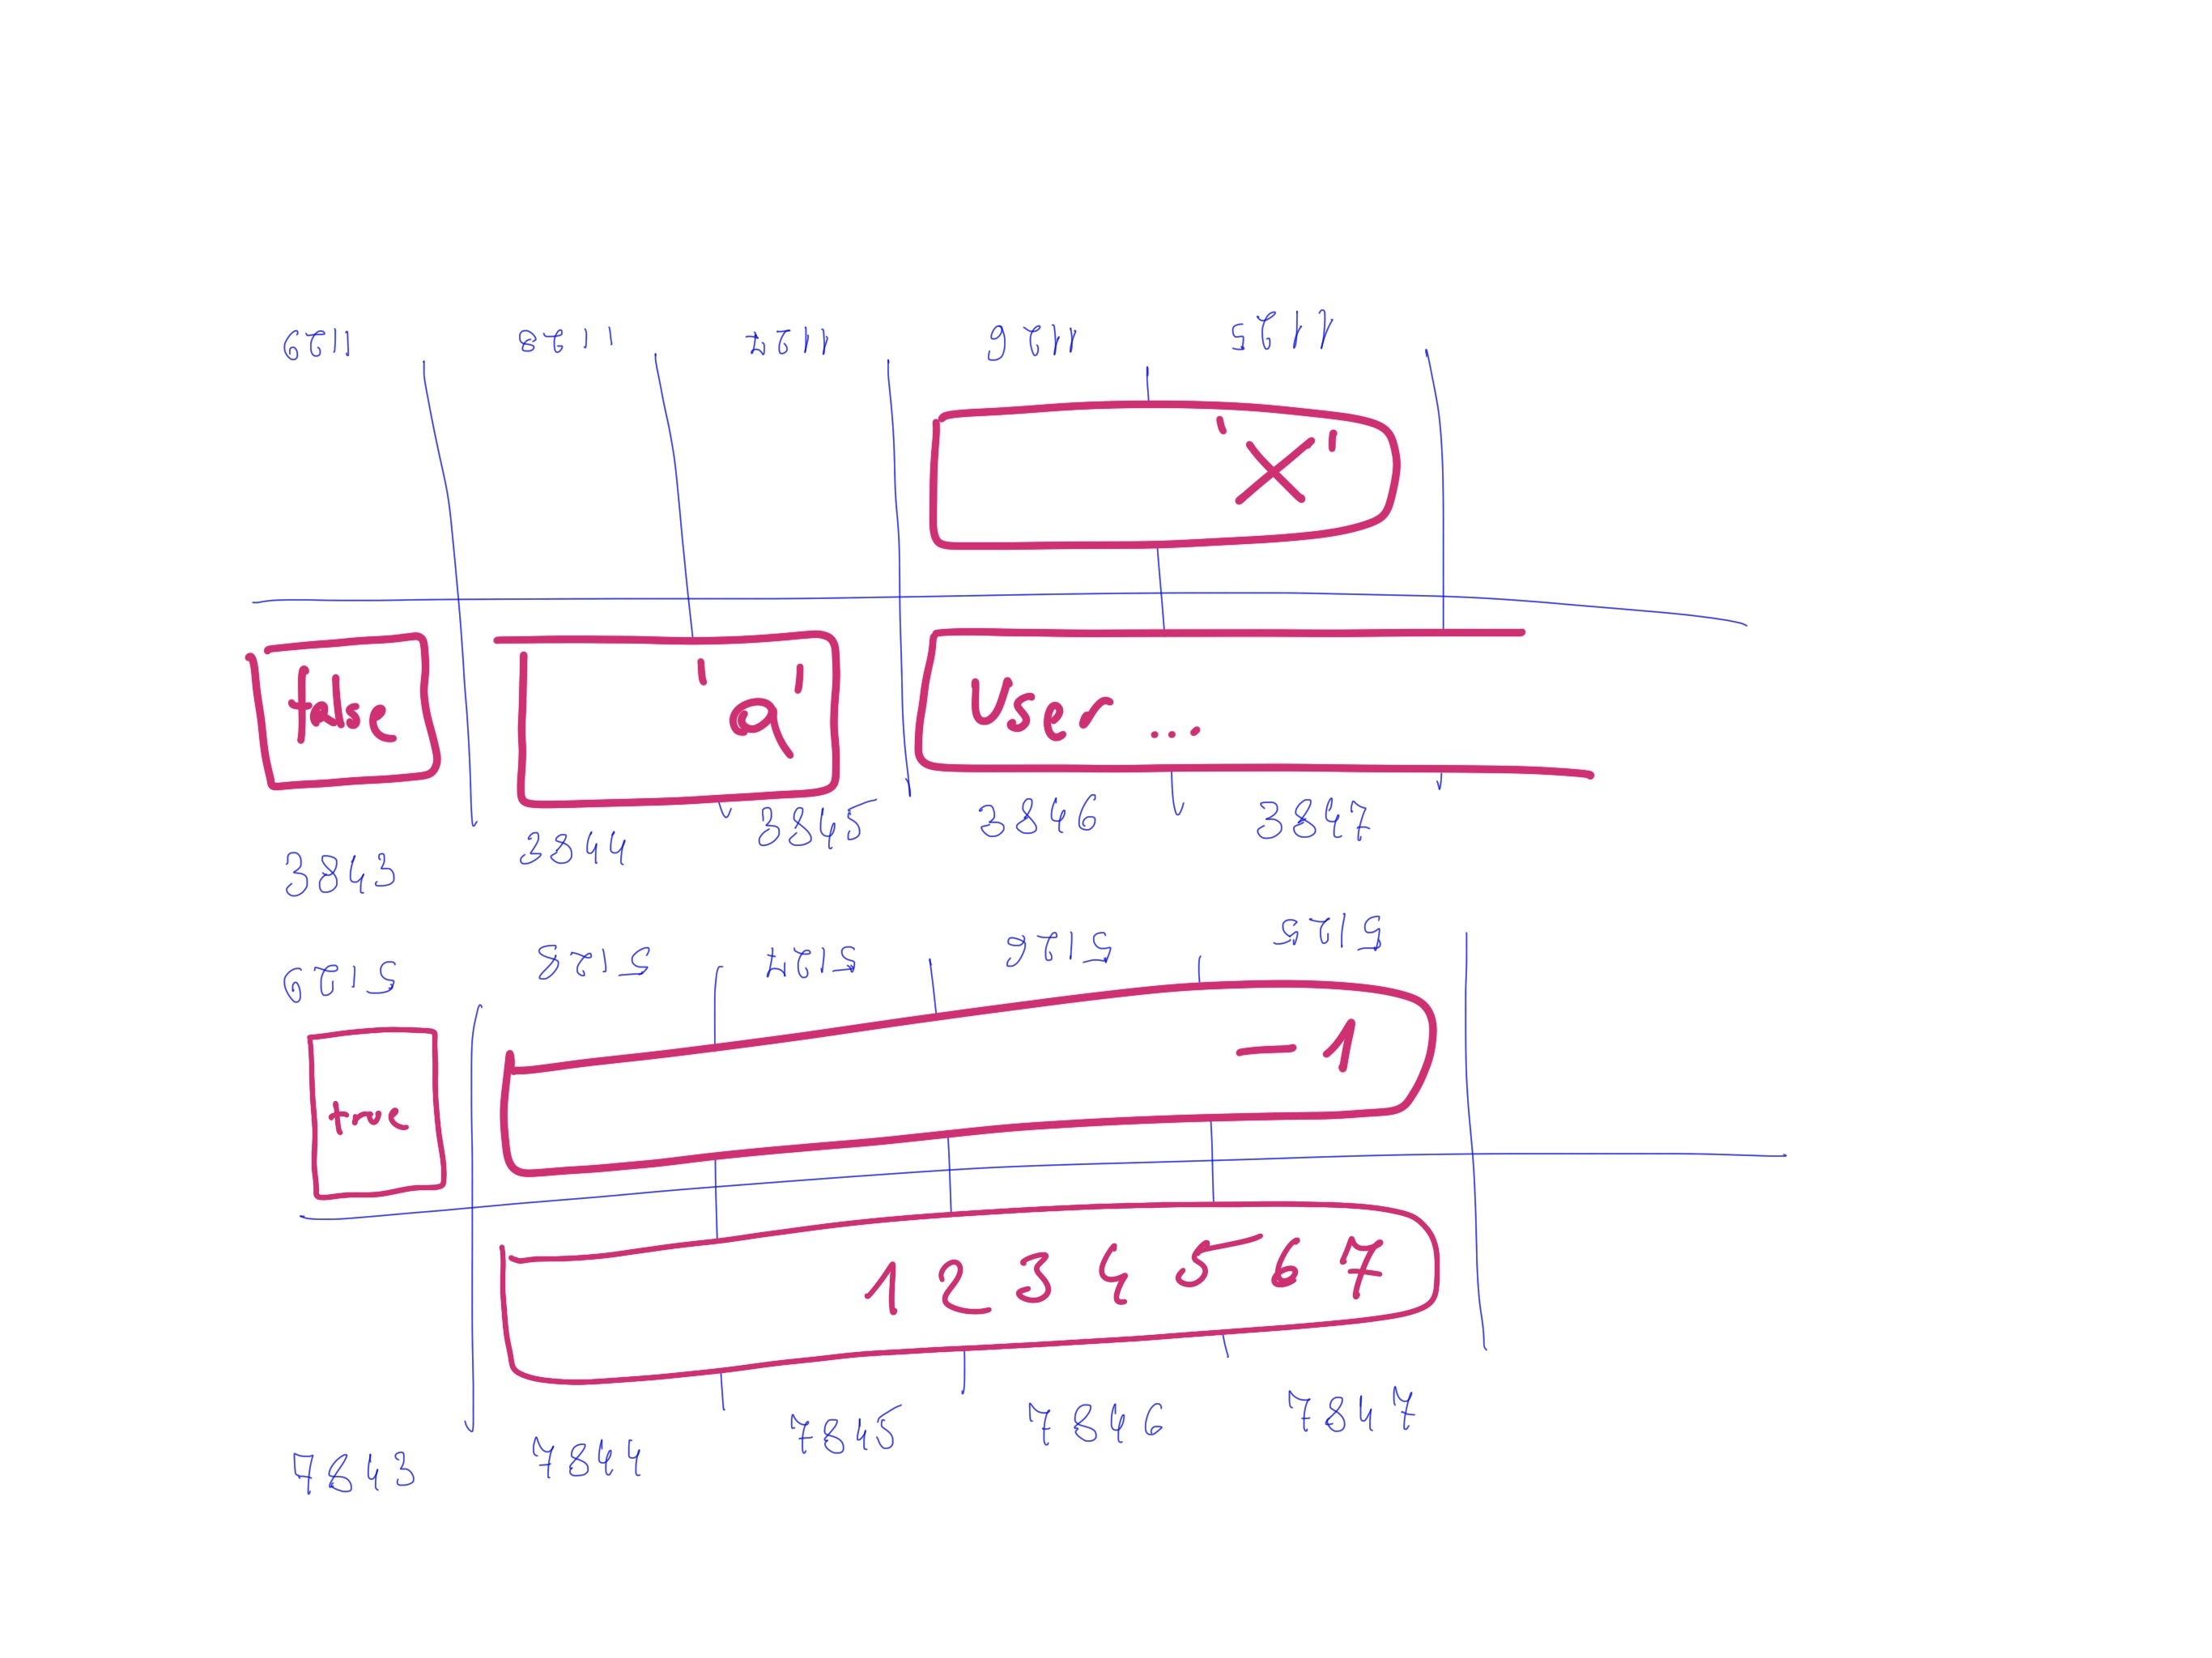 1129 1128 1127 1126 1125
'X'
false 'a' User ...
3843 3844 3845 3846 3847
5129 5128 5127 5126 5125
true -1
1234567
7843 7844 7845 7846 7847